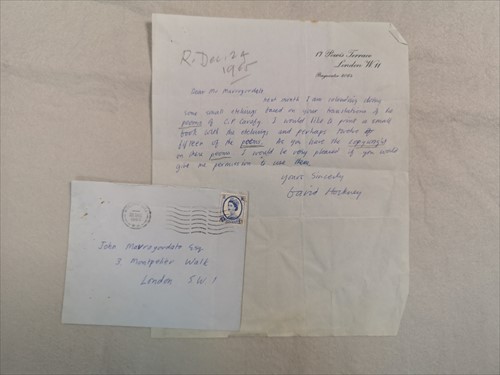 R. Dec. 24
1965
17 Powis Terrace
London W11
Bayswater
Dear Mr Mavrogordato
next month I am intending doing
some small etchings based on your translations of the
poems of C.P. Cavafy. I would like to print a small
book with the etchings and perhaps twelve or
fifteen of the poems. As you have the copyright
on these poems I would be very pleased if you would
give me permission to use them.
Yours Sincerely
David Hockney
John Mavrogordato Esq
3. Montpelier Walk
London S.W.7